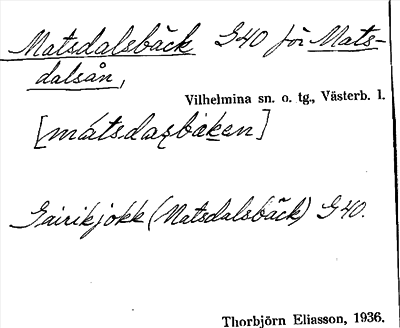 Matsdalsbäck G40 för Mats-
dalsån,
Vilhelmina sn. o. tg., Västerb. l.
[mátsdaʂbäken]
Gairikjokk (Matsdalsbäck) G40.
Thorbjörn Eliasson, 1936.